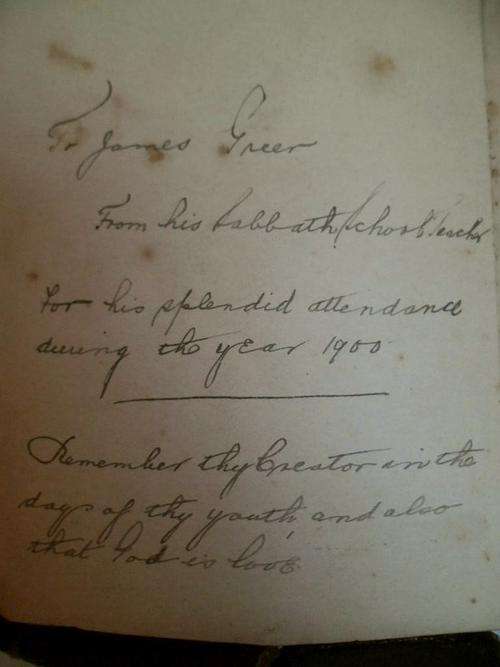 To James Greer
From his Sabbath School Teacher
For his splendid attendance
during the year 1900
Remember thy Creator in the
days of thy youth, and also
that God is love